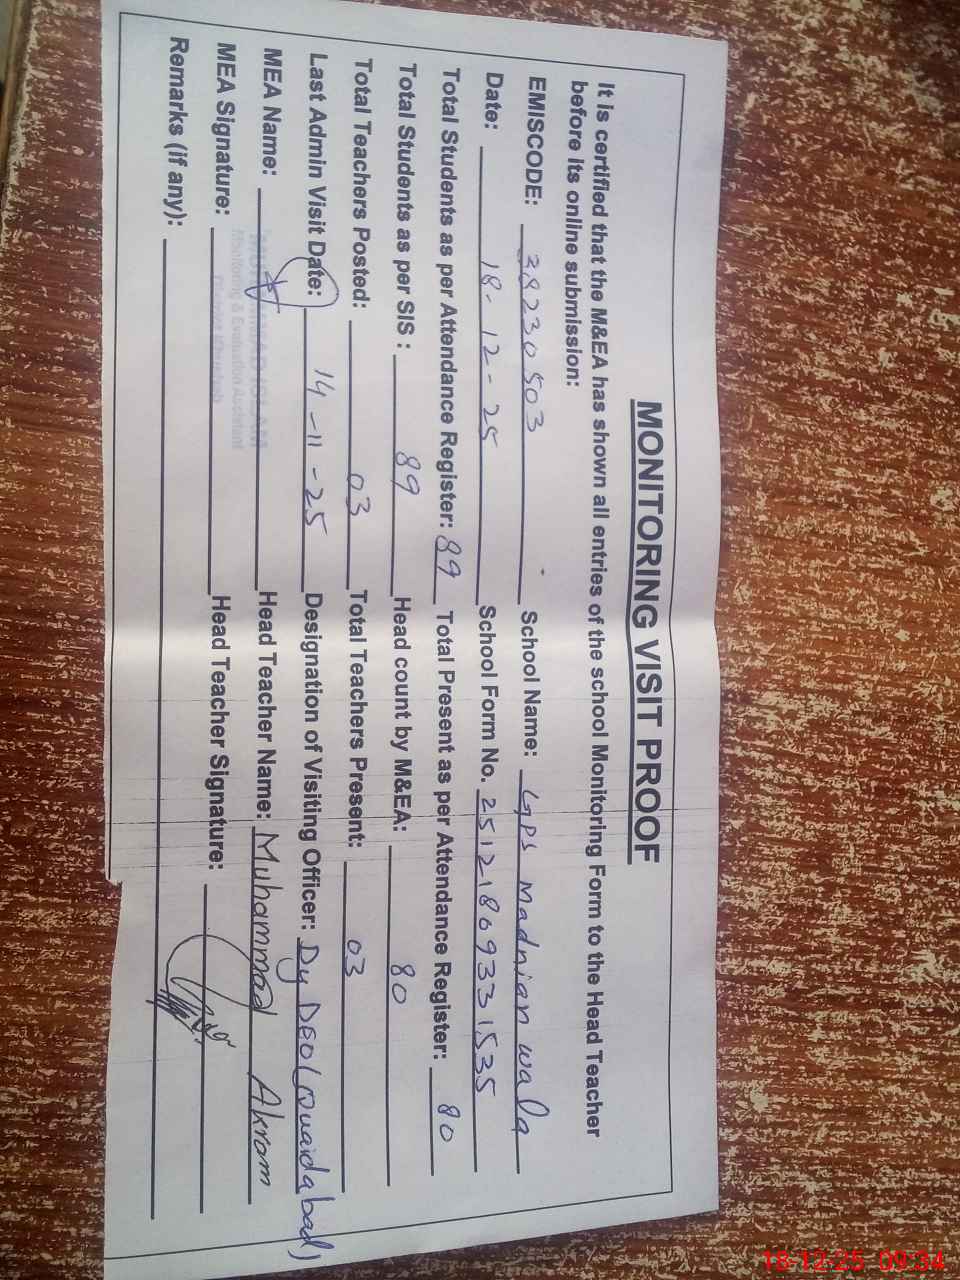 MONITORING VISIT PROOF
It is certified that the M&EA has shown all entries of the school Monitoring Form to the Head Teacher
before its online submission:
EMISCODE: 38230503 School Name: GPS Madnian wala
Date: 18-12-25 School Form No. 25121809331535
Total Students as per Attendance Register: 89 Total Present as per Attendance Register: 80
Total Students as per SIS : 89 Head count by M&EA: 80
Total Teachers Posted: 03 Total Teachers Present: 03
Last Admin Visit Date: 14-11-25 Designation of Visiting Officer: Dy DEO (Quaidabad)
MEA Name: Head Teacher Name: Muhammad Akram
Monitoring & Evaluation Assistant
MEA Signature: Head Teacher Signature:
Remarks (if any):
18-12-25 09:34